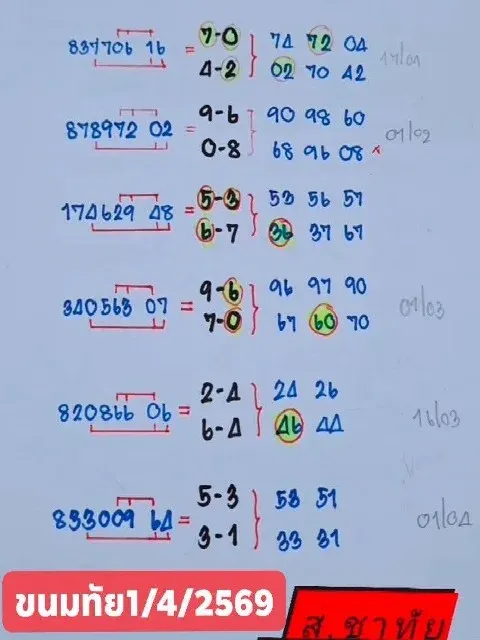 837706 16 = 7-0 74 72 04
4-2 02 70 42 17/01
878972 02 = 9-6 90 98 60
0-8 68 96 08 x 01/02
174629 48 = 5-3 53 56 57
6-7 36 37 67
340563 07 = 9-6 96 97 90 01/03
7-0 67 60 70
820866 06 = 2-4 24 26 16/03
6-4 46 44
833009 64 = 5-3 53 51 01/04
3-1 33 31
ขนมทัย1/4/2569
ส.ชาทัย